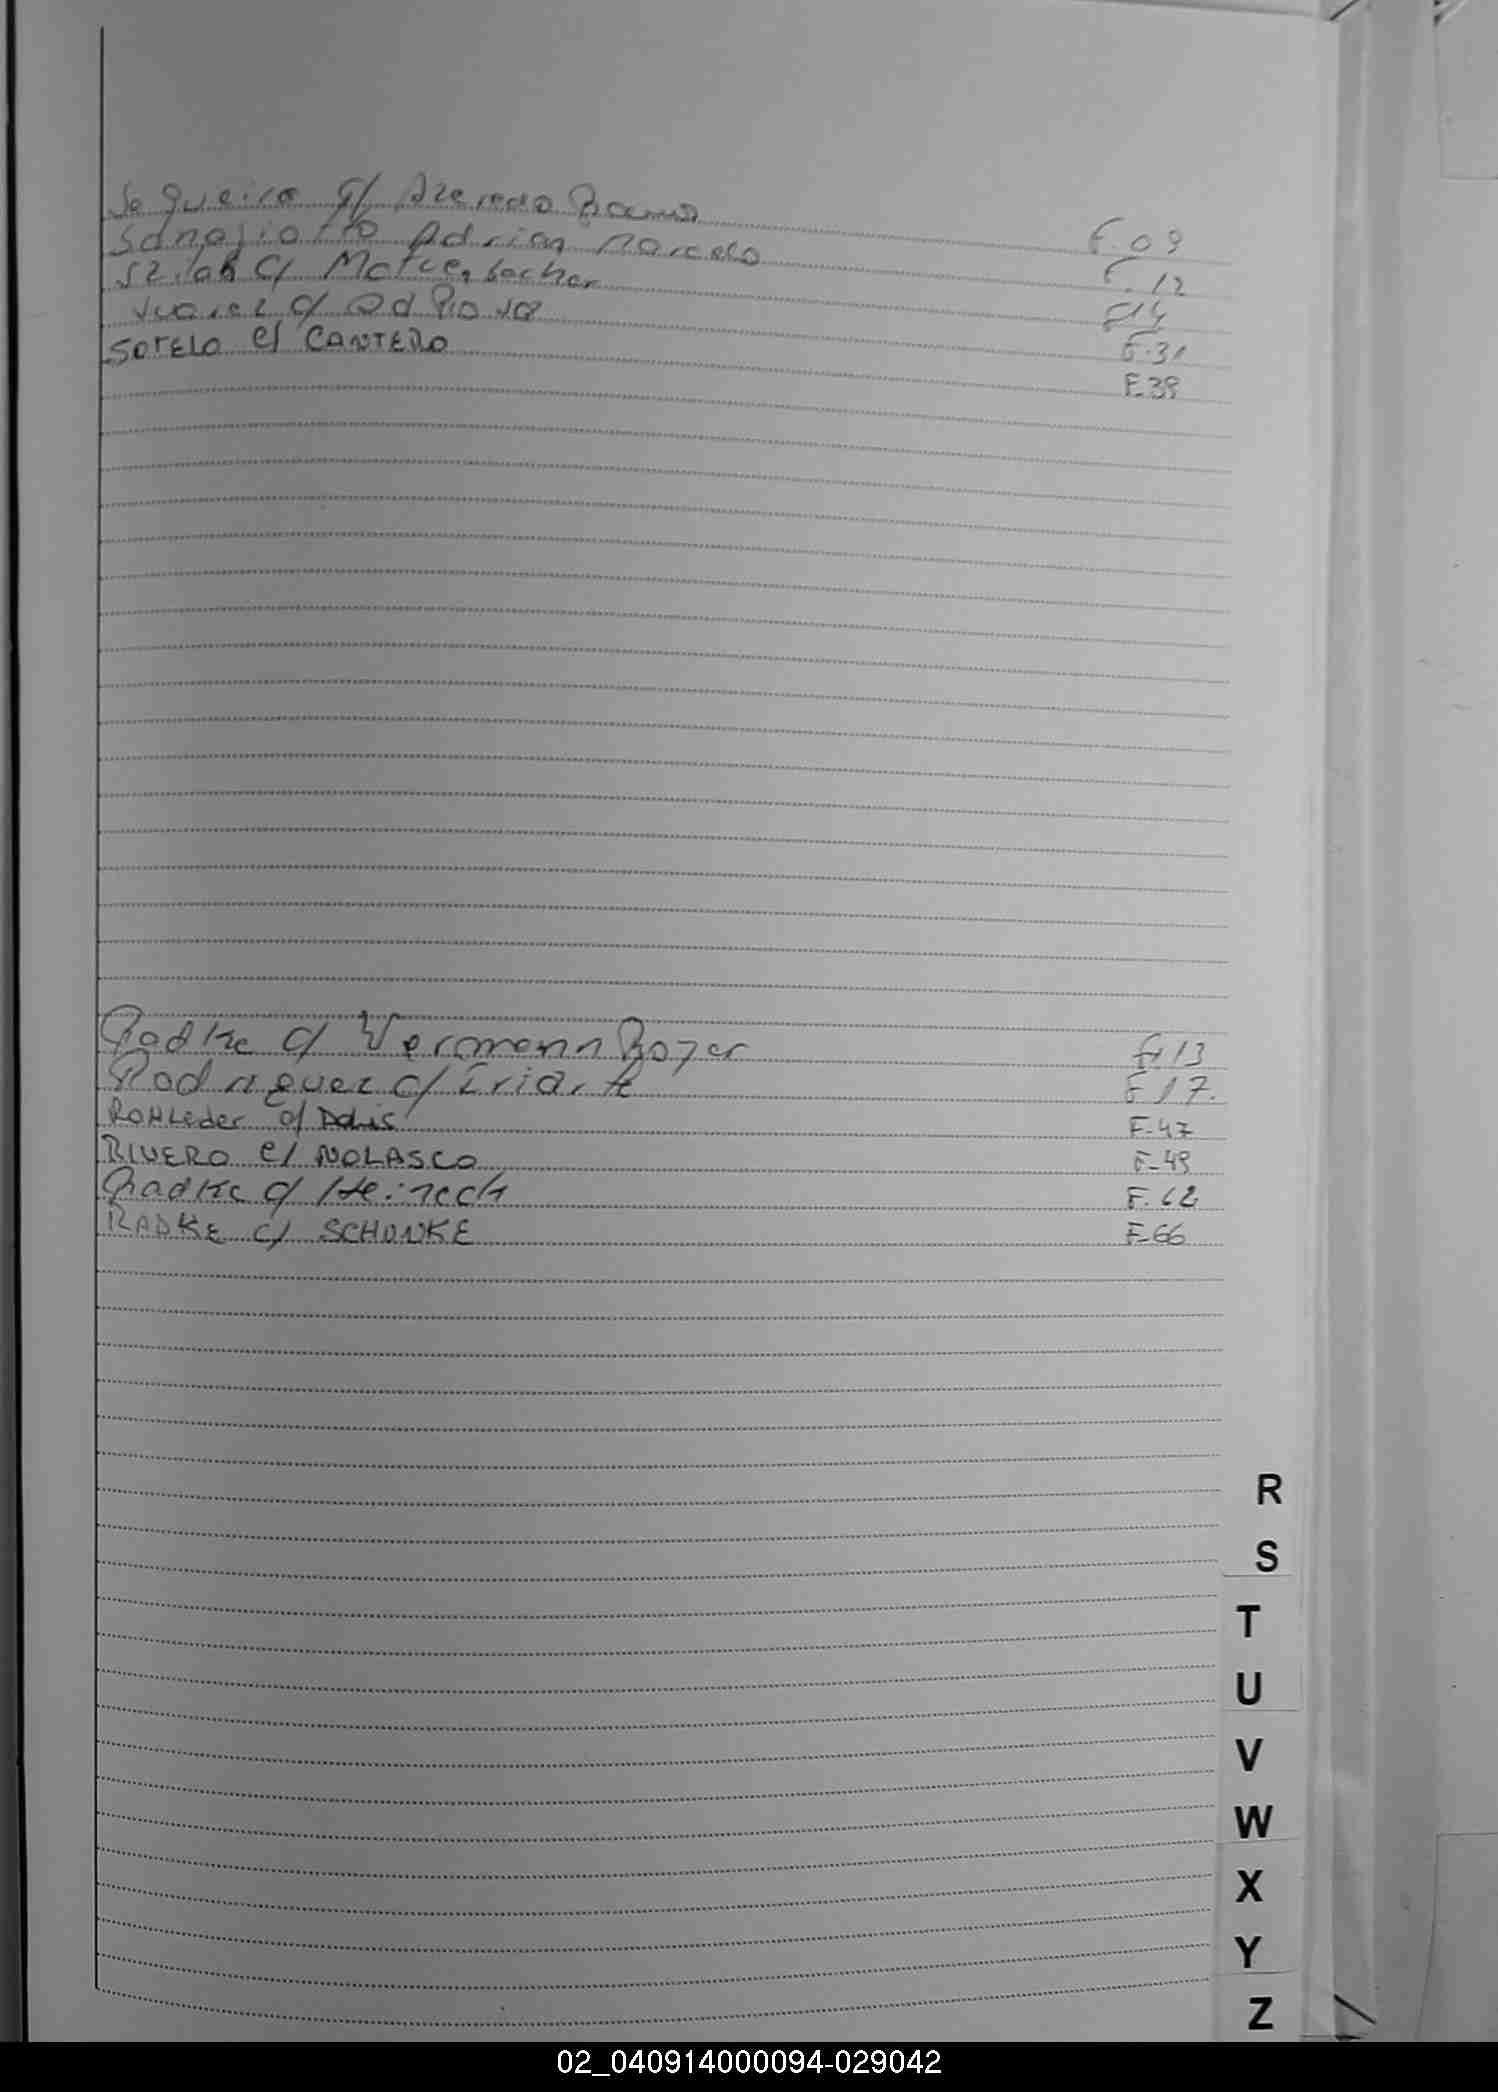 Sequeira c/ Azeredo Bocums F. 09
Sanagiotto Adrian Marcelo F. 12
Szilak c/ Motuenbacher F14
Suarez c/ F.31
SOTELO c/ CANTERO F.38
Radke c/ Wormann Boyer F. 13
Rodriguez c/ Iriarte F 17.
ROHLeder c/ F-47
RIVERO c/ NOLASCO F-49
Radke c/ Heineck F. 62
RADKE c/ SCHUNKE F-66
R
S
T
U
V
W
X
Y
Z
02_040914000094-029042